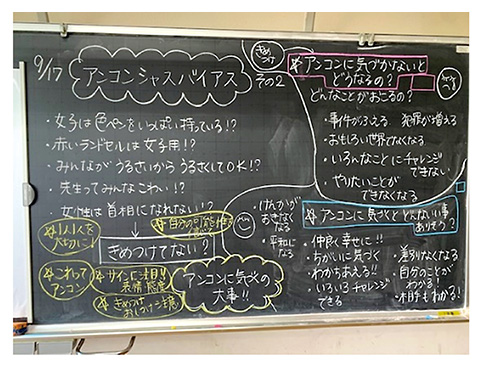 9/17
アンコンシャスバイアス
きめつけ
その2
・女子は色ペンをいっぱい持っている!?
・赤いランドセルは女子用!?
・みんながうるさいからうるさくしてOK!?
・先生ってみんなこわい!?
・女性は首相になれない?
きめつけてない?
1人1人を
大切に!
自分の可能性を
これって
アンコン
サインに注目!
表情・態度
きめつけ
おしつけ注意
アンコンに気づくの
大事!!
アンコンに気づかないと
どうなるの?
どんなことがおこるの?
・事件がふえる 犯罪が増える
・おもしろい世界でなくなる
・いろんなことにチャレンジ
できない
・やりたいことが
できなくなる
アンコンに気づくとどんないい事
ありそう?
・けんかが
おきなく
なる
・平和に
なる
・仲良く幸せに!!
・ちがいに気づく
わかちあえる!!
・いろいろチャレンジ
できる
・差別がなくなる
・自分のことが
わかる!
・相手もわかる!